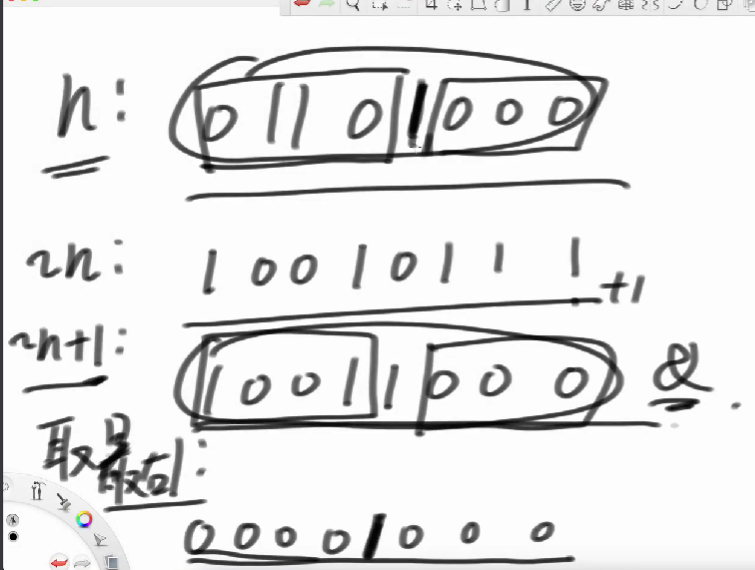 n: 0 1 1 0 1 0 0 0
~n: 1 0 0 1 0 1 1 1 +1
~n+1: 1 0 0 1 1 0 0 0 & .
取最右1:
0 0 0 0 1 0 0 0